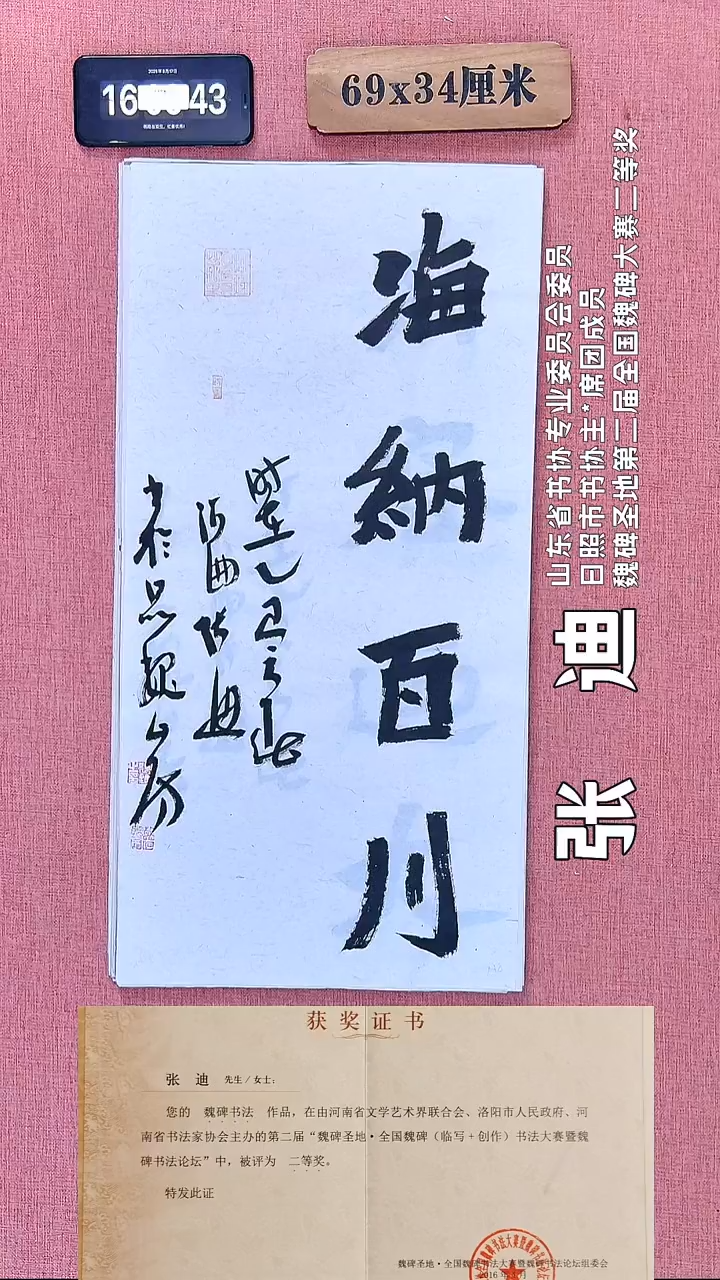 2025年8月17日
16 43
69x34厘米
海納百川
时在乙巳之秋
河曲张迪
书於品魏山房
山东省书协专业委员会委员
日照市书协主*席团成员
魏碑圣地第二届全国魏碑大赛二等奖
张 迪
获奖证书
张 迪 先生/女士：
您的 魏碑书法 作品，在由河南省文学艺术界联合会、洛阳市人民政府、河
南省书法家协会主办的第二届“魏碑圣地·全国魏碑（临写+创作）书法大赛暨魏
碑书法论坛”中，被评为 二等奖。
特发此证
魏碑圣地·全国魏碑书法大赛暨魏碑书法论坛组委会
2016年 月